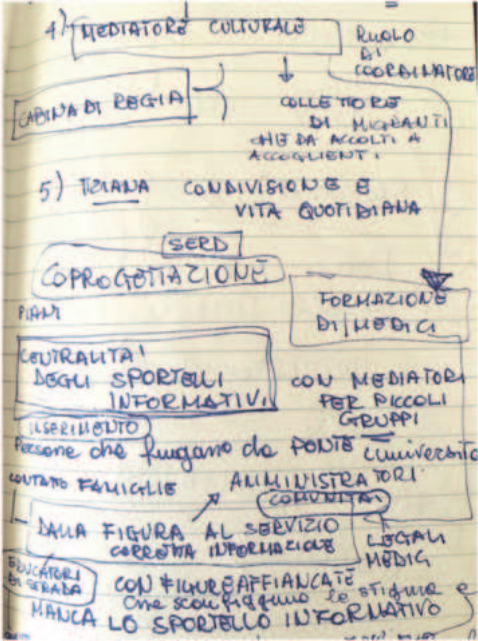 4) MEDIATORE CULTURALE
RUOLO
DI
COORDINATORE
CABINA DI REGIA
COLLETTORE
DI MIGRANTI
CHE DA ACCOLTI A
ACCOGLIENTI
5) TIZIANA CONDIVISIONE E
VITA QUOTIDIANA
SERD
COPROGETTAZIONE
PIANI
FORMAZIONE
DI/MEDICI
CENTRALITA'
DEGLI SPORTELLI
INFORMATIVI
CON MEDIATORI
PER PICCOLI
GRUPPI
INSERIMENTO
Persone che fungano da PONTE università
CONTATTO FAMIGLIE
AMMINISTRATORI
COMUNITA'
DALLA FIGURA AL SERVIZIO
CORRETTA INFORMAZIONE
LEGALI
MEDICI
EDUCATORI
DI STRADA
CON FIGURE AFFIANCATE
che sconfiggano lo stigma e
MANCA LO SPORTELLO INFORMATIVO